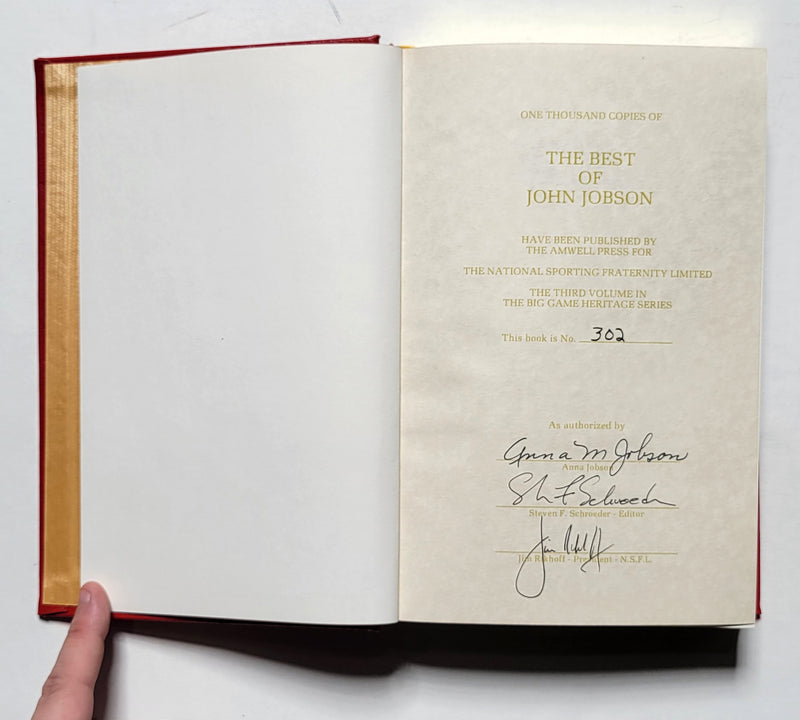 ONE THOUSAND COPIES OF
THE BEST
OF
JOHN JOBSON
HAVE BEEN PUBLISHED BY
THE AMWELL PRESS FOR
THE NATIONAL SPORTING FRATERNITY LIMITED
THE THIRD VOLUME IN
THE BIG GAME HERITAGE SERIES
This book is No. 302
As authorized by
Anna M Jobson
Anna Jobson
Steven F. Schroeder - Editor
Jim Rikhoff - President - N.S.F.L.